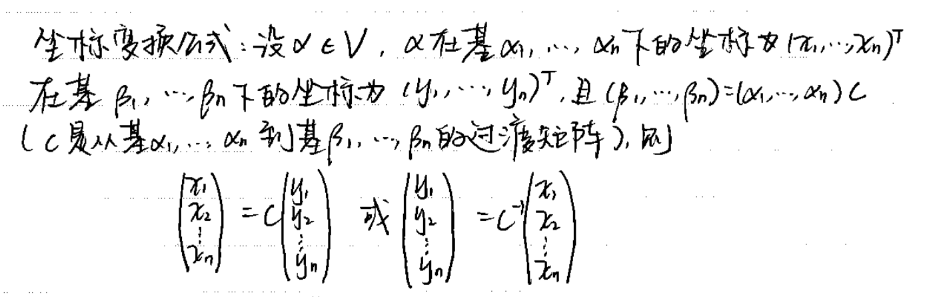 坐标变换公式:设α∈V, α在基α₁, ⋯, αₙ下的坐标为(x₁, ⋯, xₙ)ᵀ
在基β₁, ⋯, βₙ下的坐标为(y₁, ⋯, yₙ)ᵀ, 且(β₁, ⋯, βₙ)=(α₁, ⋯, αₙ)C
(C是从基α₁, ⋯ αₙ到基β₁, ⋯, βₙ的过渡矩阵), 则
(x₁ x₂ ⋮ xₙ) = C(y₁ y₂ ⋮ yₙ) 或 (y₁ y₂ ⋮ yₙ) = C⁻¹(x₁ x₂ ⋮ xₙ)